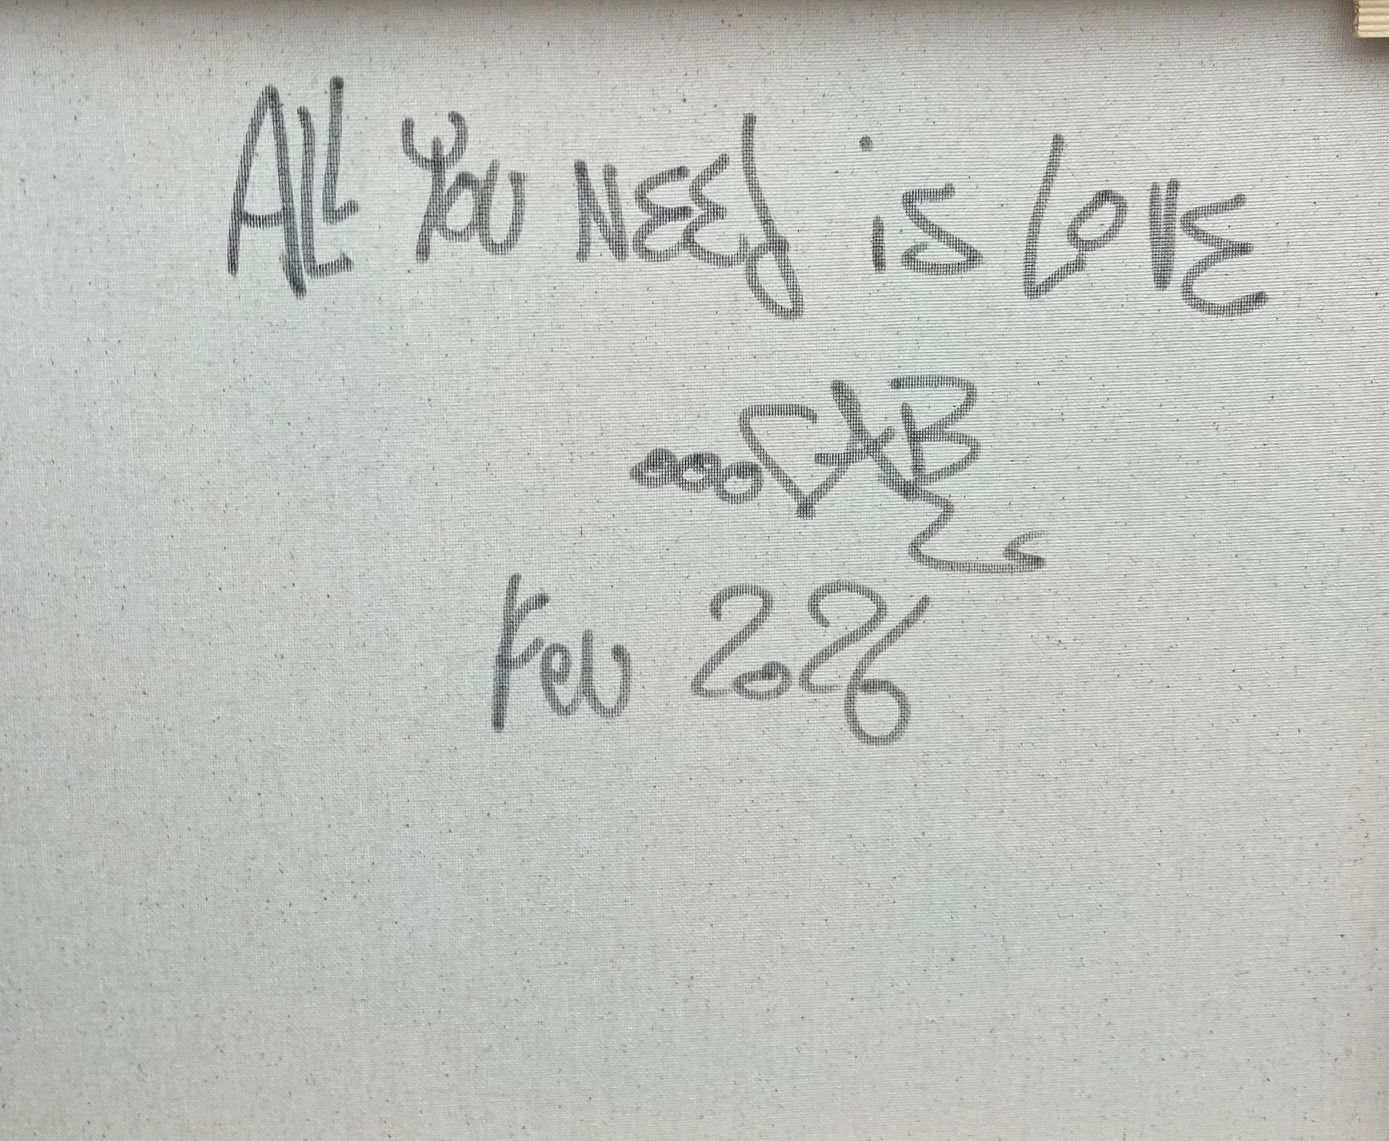 All You NEEd is LOVE
Feb 2026